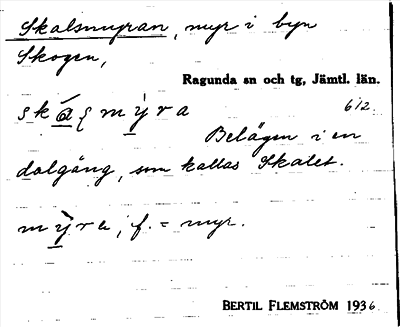 Skalsmyran, myr i byn
Skogen,
Ragunda sn och tg, Jämtl. län.
skáʃmỳra 6/2.
Belägen i en
dalgång, som kallas Skalet.
mỳra, f. = myr.
BERTIL FLEMSTRÖM 1936.